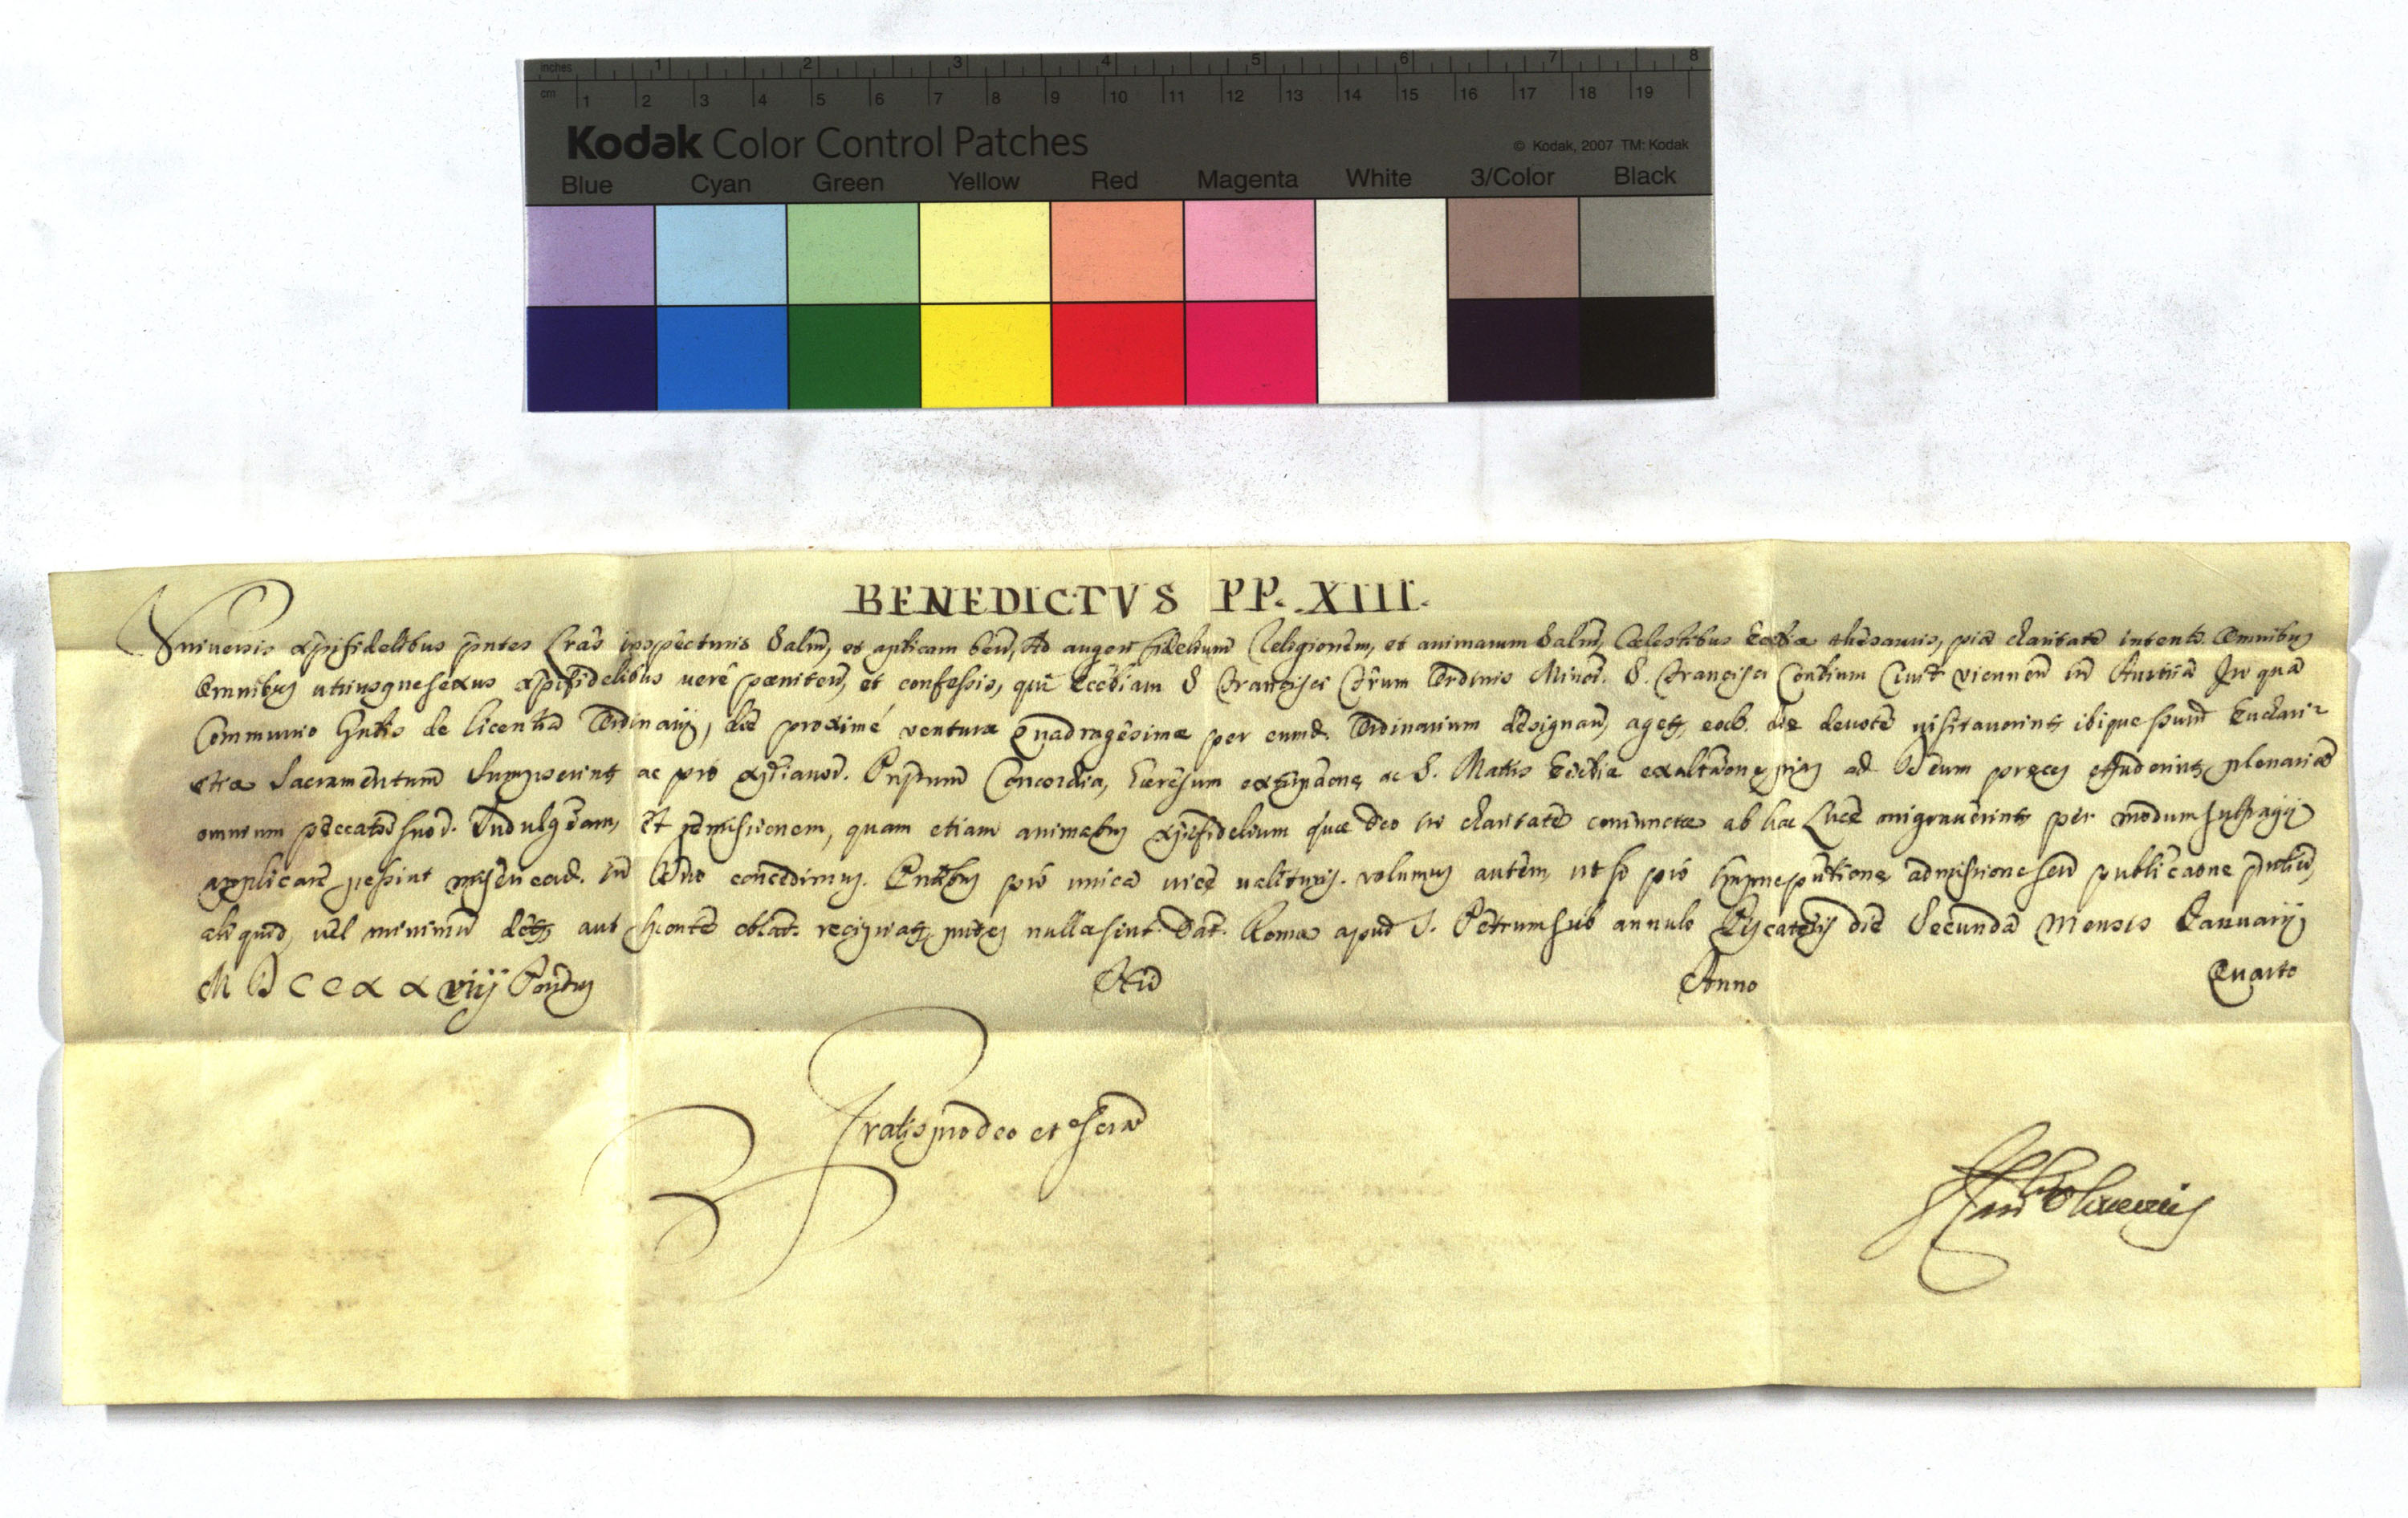 inches 1 2 3 4 5 6 7 8
cm 1 2 3 4 5 6 7 8 9 10 11 12 13 14 15 16 17 18 19
Kodak Color Control Patches © Kodak, 2007 TM: Kodak
Blue Cyan Green Yellow Red Magenta White 3/Color Black
BENEDICTVS PP. XIII.
Universis xpifidelibus pntes Lras inspecturis Salm, et aplicam ben, Ad augen fidelium Religionem, et animarum Salm, Cœlestibus Ecclia thesauris, pia charitate intenti Omnibus
Omnibus utriusque sexus xpifidelibus verè pœniten, et confessis, qui Eccliam S Francisci Frum Ordinis Minor. S. Francisci Contium Civit viennen in Austria In qua
Communio Gnlis de licentia Ordinarij, die proximé venturæ Quadragesimæ per eumd. Ordinarium designan, eod. die devotè visitaverint ibique ssum Euchari-
stiæ Sacramentum Sumpserint ac pro xpianor. Prpum Concordia, hæresum extirpaone, ac S. Matris Ecclæ exaltaone, pias ad Deum preces effuderint, plenariã
omnium peccator suor. Indulgeam, et remissionem, quam etiam animabus xpifidelium quæ Deo in charitate coniunctæ ab hac Luce migraverint per modum suffragij
applicare possint misericord. in Dno concedimus. Pntibus pro unica vice valituris. volumus autem, ut si pro impnepntione, admissione seu publicaone pntium,
aliquid, vel minimum aut sponte oblat. nullæ sint. Dat. Romæ apud S. Petrum sub annulo Piscatoris die Secunda Mensis Januarij
M D C C X X viij Pontus Nri Anno Quarto
Gratis pro deo et scra